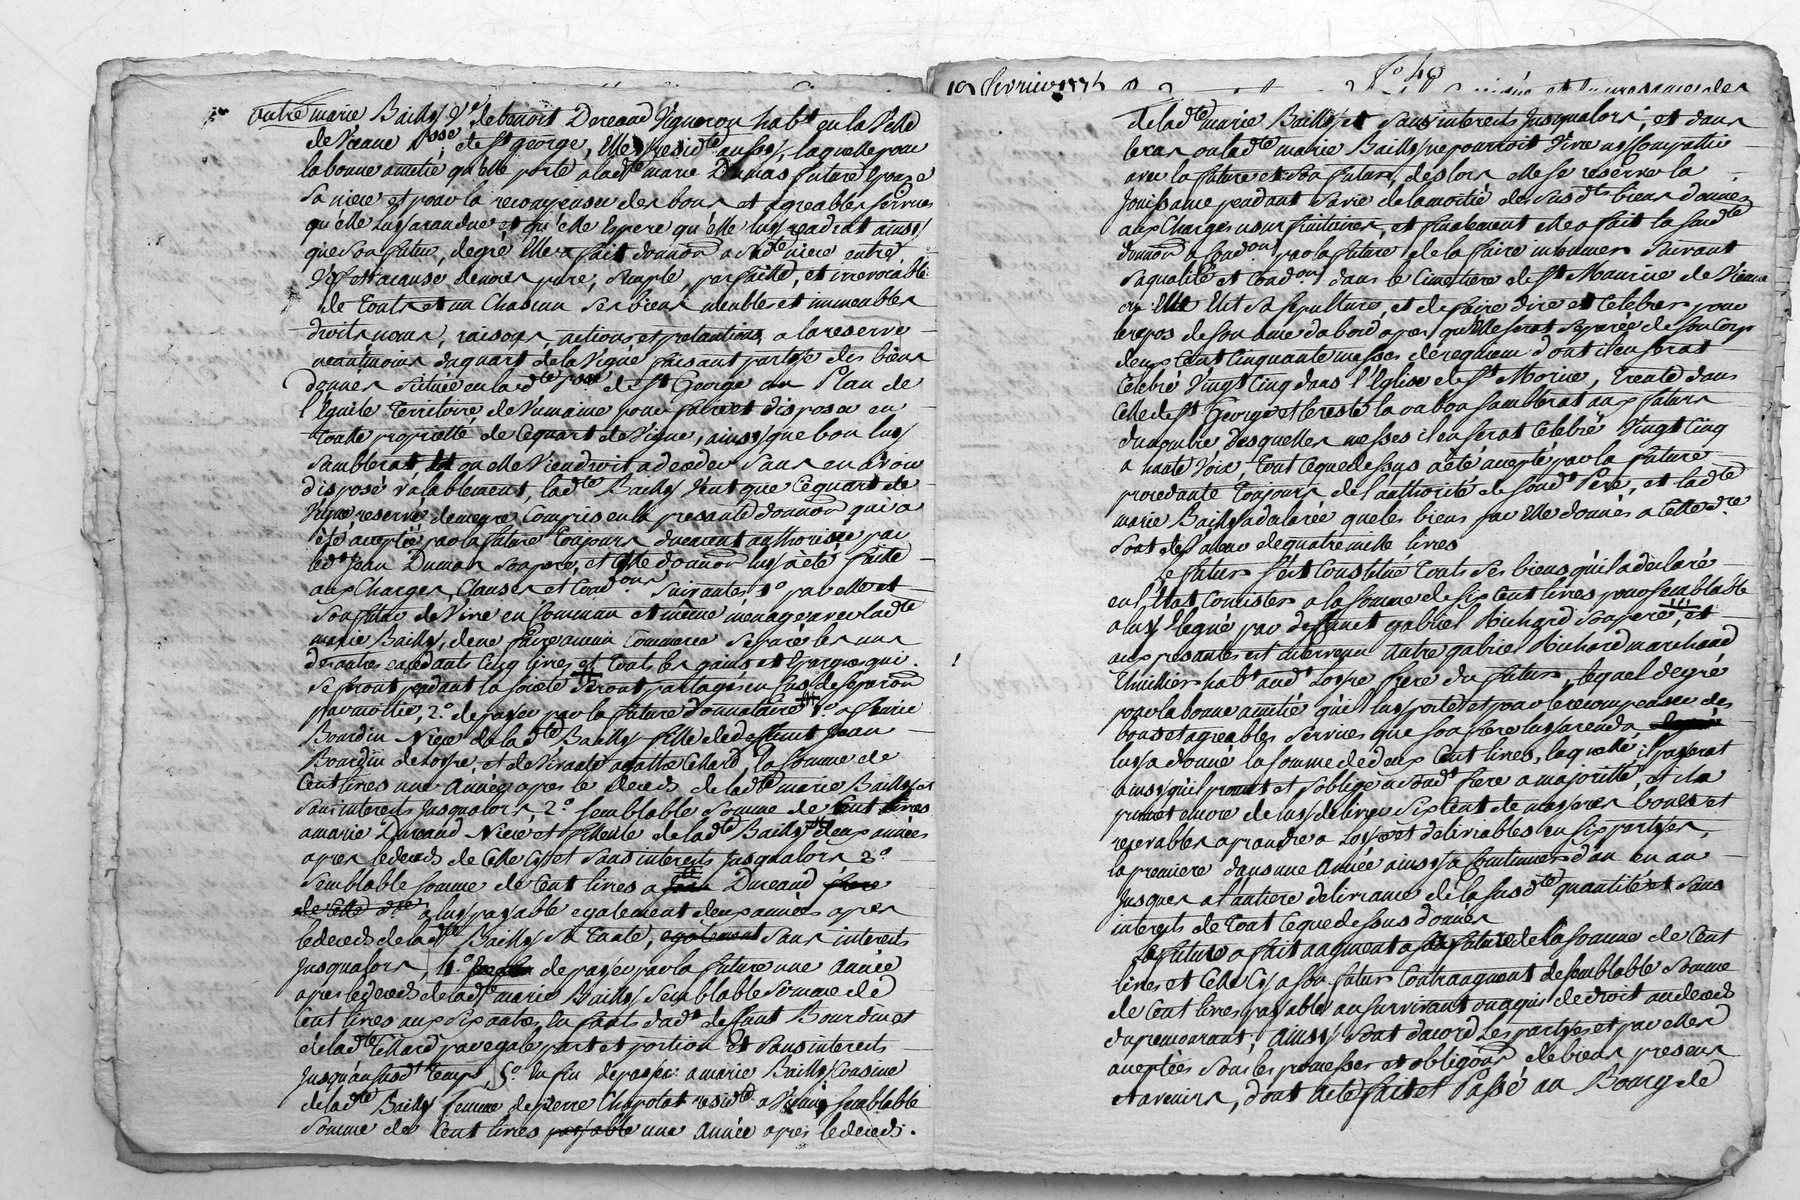 outre marie Bailly Ve de benoit Dureand Vigneron habt en la Ville
de Vienne psse de St george, Elle presidte aussy, laquelle pour
la bonne amitié qu'elle porte a ladte marie Dumas future Epouse
Sa niece et pour la recompenser des bons et agreables services
qu'elle luy a rendue et qu'elle Espere qu'elle luy rendrat ainsy
que son futur, de gré Elle a fait donnon a sadte niece entre
Vifs et a cause de noces pure, simple, parfaitte, et irrevocable
de Touts et un Chascun ses biens meubles et immeubles
droits noms, raisons, actions, et pretantions, a la reserve
neantmoins du quart de la Vigne faisant partye des biens
donnés située en la dte psse de St George au Plan de
l'Eguile Territoire de Vumaine pour faire et disposer en
toute proprietté de Ce quart de Vigne, ainsy que bon luy
samblerat, et ou elle Viendroit a deceder sans en avoir
disposé valablement, ladte Bailly Veut que Ce quart de
Vigne reservé demeure Compris en la presante donnon qui a
été acceptée par la future Toujours dument authorisée par
ledt Jean Dumas son pere, et Elle donnon luy a été faitte
aux Charges, Clauses et Condons Suivantes 1o par elle et
son futur de Vivre en Commun et même ménage avec ladte
marie Bailly, de ne faire aucun Commerce Separé les uns
des autres excedants Cinq livres et Touts les gains et Epargnes qui
se feront pendant la societé seront partagés en Cas de separon
par moitié, 2o de payer par la future donnataire 1o a marie
Bourdin Niece de ladte Bailly fille de deffunt Jean
Bourdin de Loyre, et de Vivante agathe Cellard, la somme de
Cent livres une Année apres le deceds de ladte marie Bailly et
sans interests Jusqualors, 2o semblable somme de Cent livres
a marie Dureand Niece et filleule de ladte Bailly deux années
apres le deceds de Celle Cy et sans interests Jusqualors 3o
semblable somme de Cent livres a Jean Dureand frere
de Celle dre a luy payable egalement deux années apres
le deceds de ladte Bailly sa Tante, egalement sans interests
Jusqualors, 4o de payer par la future une Année
apres le deceds de ladte marie Bailly semblable somme de
Cent livres aux six autres Enfants dudt deffunt Bourdin et
de ladte Cellard par egale part et portion et sans interests
Jusqu'au susdt temps, 5o Enfin de payer a marie Bailly Cousine
de ladte Bailly femme de pierre Chapotat residte a Vienne semblable
somme de Cent livres payable une Année apres le deceds
19 fevrier fo 40
de ladte marie Bailly et sans interests Jusqualors, et dans
le cas ou ladte marie Bailly ne pourroit Vivre ny Compattir
avec la future et son futur, des lors elle se reserve la
Jouissance pendant sa vie de la moitié des susdts biens donnés
aux Charges usufruitaires, et finalement elle a fait la susdte
donnon a Condon par la future de la faire inhumer suivant
sa qualité et Condon dans le Cimetiere de St Maurice de Vienne
ou Elle Elit sa sepulture, et de faire dire et Celebrer pour
le repos de son ame d'abord apres qu'elle serat separée de son Corp
deux Cent Cinquante messes de requiem dont il en serat
Celebré Vingt Cinq dans l'Eglise de St Morice, Trente dans
Celle de St George et le reste la ou bon semblerat aux futurs
du nombre desquelles messes il en serat Celebré Vingt Cinq
a haute Voix, tout Ce que dessus a été accepté par la future
procedante Toujours de l'authorité de sondt Pere, et ladte
marie Bailly a declarée que les biens par Elle donnés a Cette dre
sont de Valeur de quatre mille livres
Le futur s'est Constitué Touts ses biens qu'il a declaré
en l'Etat Consister a la somme de six Cent livres pour semblable
a luy legué par deffunct gabriel Richard son pere, et
aux presantes est intervenu Autre gabriel Richard marchand
habt audt Loyre frere du futur, lequel de gré
pour la bonne amitié qu'il luy porte et pour le recompenser des
bons et agreables services que son frere luy a rendu
luy a donné la somme de deux Cent livres, laquelle il payerat
ainsy qu'il promet et s'oblige a sondt frere a majorité, et il a
promet encore de luy delivrer six Cent de bones et
recevables a prendre a Loyre et delivrables en six partyes,
la premiere dans une Année ainsy a Continuer d'an en an
Jusques a l'antiere delivrance de la susdte quantité et sans
interests de tout Ce que dessus donné
Le futur a fait augment a sa future de la somme de Cent
livres et Celle Cy a son futur Contraugment de semblable somme
de Cent livres payable au survivant ou acquis de droit au deceds
du premourant, Ainsy sont d'acord les partyes et par elles
acceptées sous les promesses et obligons de biens presens
et avenirs, dont acte fait et Passé au Bourg de